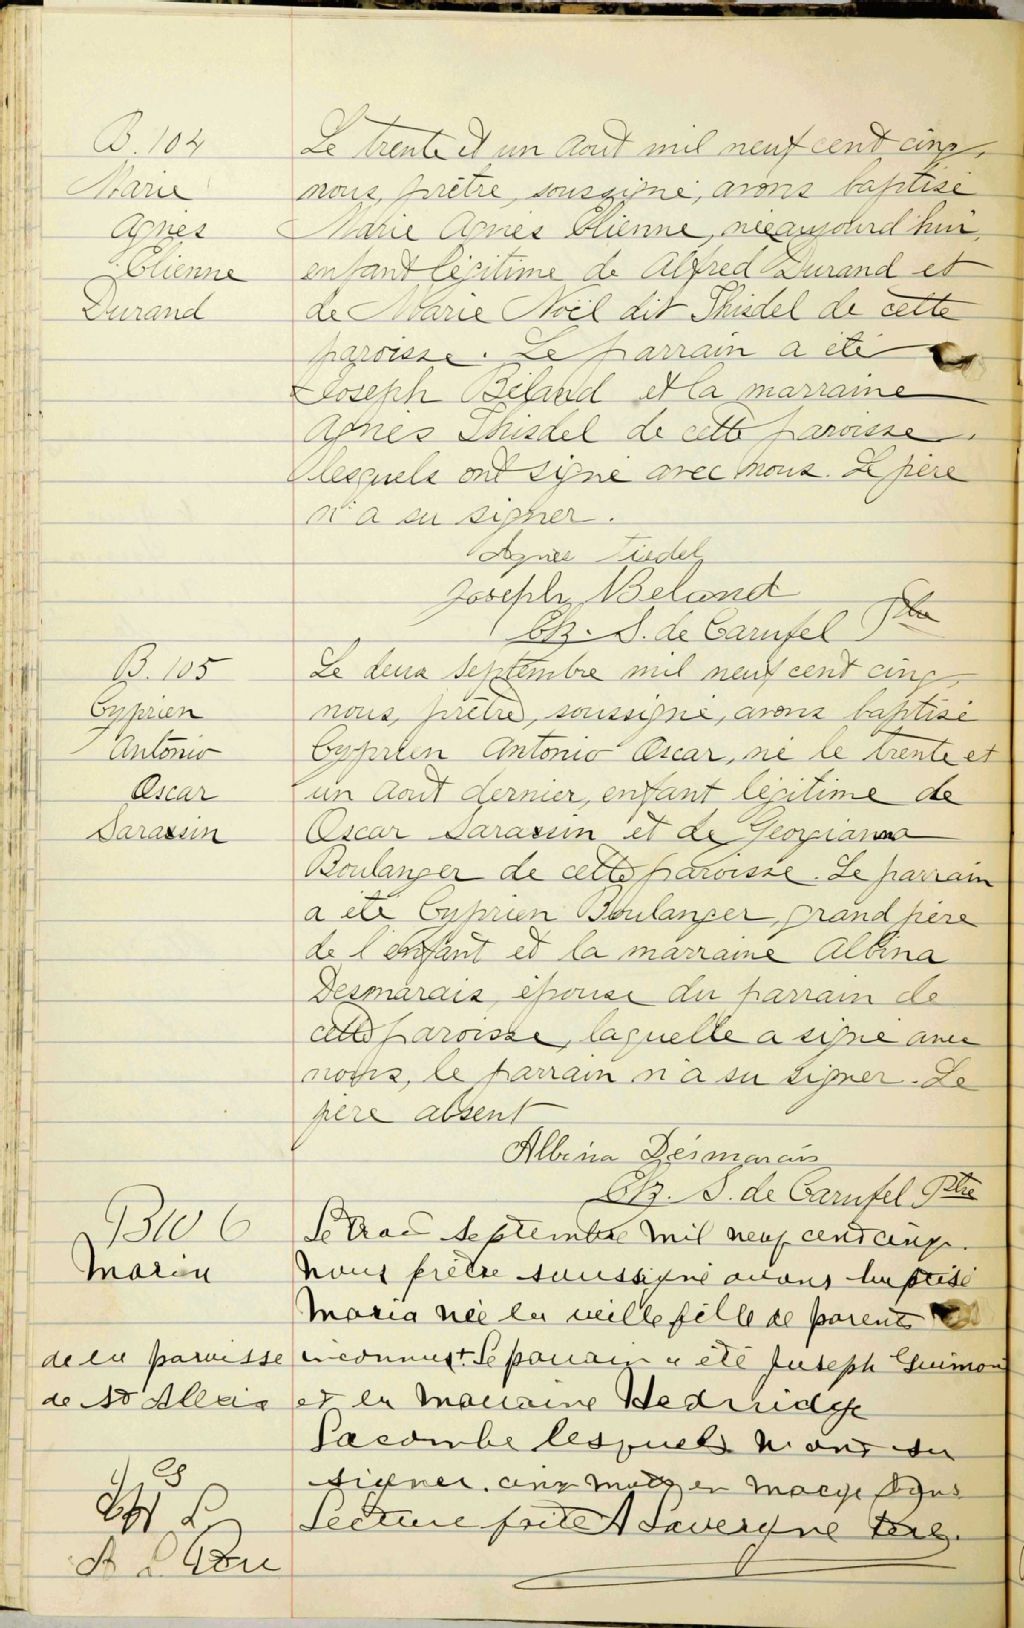 B. 104
Marie
Agnès
Etienne
Durand
Le trente et un Aout mil neuf cent cinq,
nous, prêtre, soussigné, avons baptisé
Marie Agnès Etienne, née aujourd'hui,
enfant légitime de Alfred Durand et
de Marie Noël dit Thisdel de cette
paroisse. Le parrain a été
Joseph Béland et la marraine
Agnès Thisdel de cette paroisse,
lesquels ont signé avec nous. Le père
n'a su signer.
Agnes Tisdel
Joseph Beland
Chz. S. de Carufel Ptre
B. 105
Cyprien
Antonio
Oscar
Sarassin
Le deux septembre mil neuf cent cinq,
nous, prêtre, soussigné, avons baptisé
Cyprien Antonio Oscar, né le trente et
un Aout dernier, enfant légitime de
Oscar Sarassin et de Georgianna
Boulanger de cette paroisse. Le parrain
a été Cyprien Boulanger, grand père
de l'enfant et la marraine Albina
Desmarais, épouse du parrain de
cette paroisse, laquelle a signé avec
nous, le parrain n'a su signer. Le
père absent
Albina Désmarais
Chz. S. de Carufel Ptre
B106
Maria
de la paroisse
de St Alexis
A L Ptre
Le trois septembre mil neuf cent cinq.
Nous prêtre soussigné avons baptisé
Maria née la veille fille de parents
inconnus+. Le parrain a été Joseph Guimon
et la marraine Hedwidge
Lacombe lesquels n'ont su
signer. cinq mots en marge bons
Lecture faite A Lavergne Ptre.